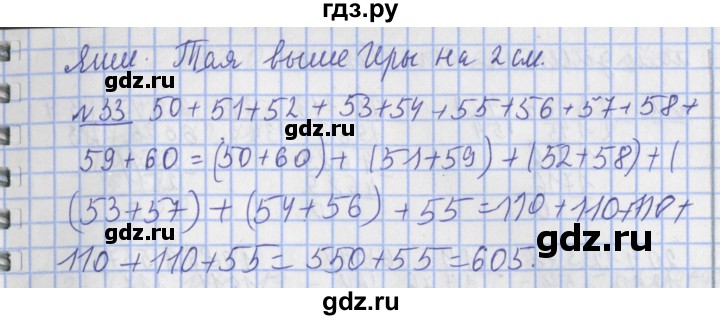 гдз.ру
Яши. Тая выше Иры на 2 см.
gdz.ru gdz.ru
№33 50+51+52+53+54+55+56+57+58+
59+60=(50+60)+(51+59)+(52+58)+(
gdz.ru gdz.ru
(53+57)+(54+56)+55=110+110+110+
110+110+55=550+55=605.
gdz.ru
gdz.ru